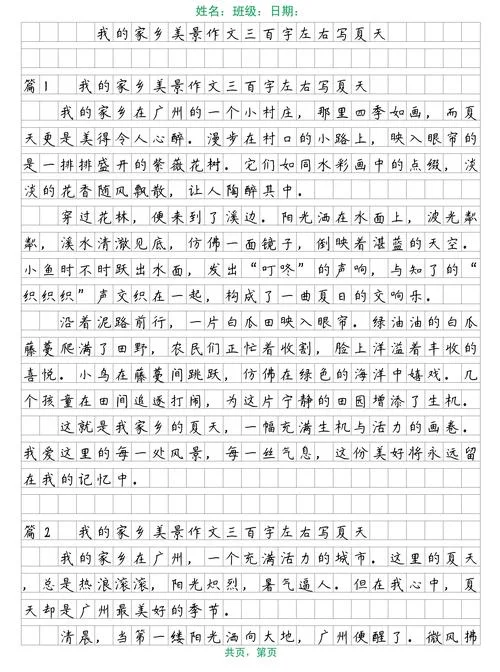 姓名：班级：日期：
我的家乡美景作文三百字左右写夏天
篇1 我的家乡美景作文三百字左右写夏天
我的家乡在广州的一个小村庄，那里四季如画，而夏
天更是美得令人心醉。漫步在村口的小路上，映入眼帘的
是一排排盛开的紫薇花树。它们如同水彩画中的点缀，淡
淡的花香随风飘散，让人陶醉其中。
穿过花林，便来到了溪边。阳光洒在水面上，波光粼
粼，溪水清澈见底，仿佛一面镜子，倒映着湛蓝的天空。
小鱼时不时跃出水面，发出“叮咚”的声响，与知了的“
织织织”声交织在一起，构成了一曲夏日的交响乐。
沿着泥路前行，一片白瓜田映入眼帘。绿油油的白瓜
藤蔓爬满了田野，农民们正忙着收割，脸上洋溢着丰收的
喜悦。小鸟在藤蔓间跳跃，仿佛在绿色的海洋中嬉戏。几
个孩童在田间追逐打闹，为这片宁静的田园增添了生机。
这就是我家乡的夏天，一幅充满生机与活力的画卷。
我爱这里的每一处风景，每一丝气息，这份美好将永远留
在我的记忆中。
篇2 我的家乡美景作文三百字左右写夏天
我的家乡在广州，一个充满活力的城市。这里的夏天
，总是热浪滚滚，阳光炽烈，暑气逼人。但在我心中，夏
天却是广州最美好的季节。
清晨，当第一缕阳光洒向大地，广州便醒了。微风拂
共页，第页